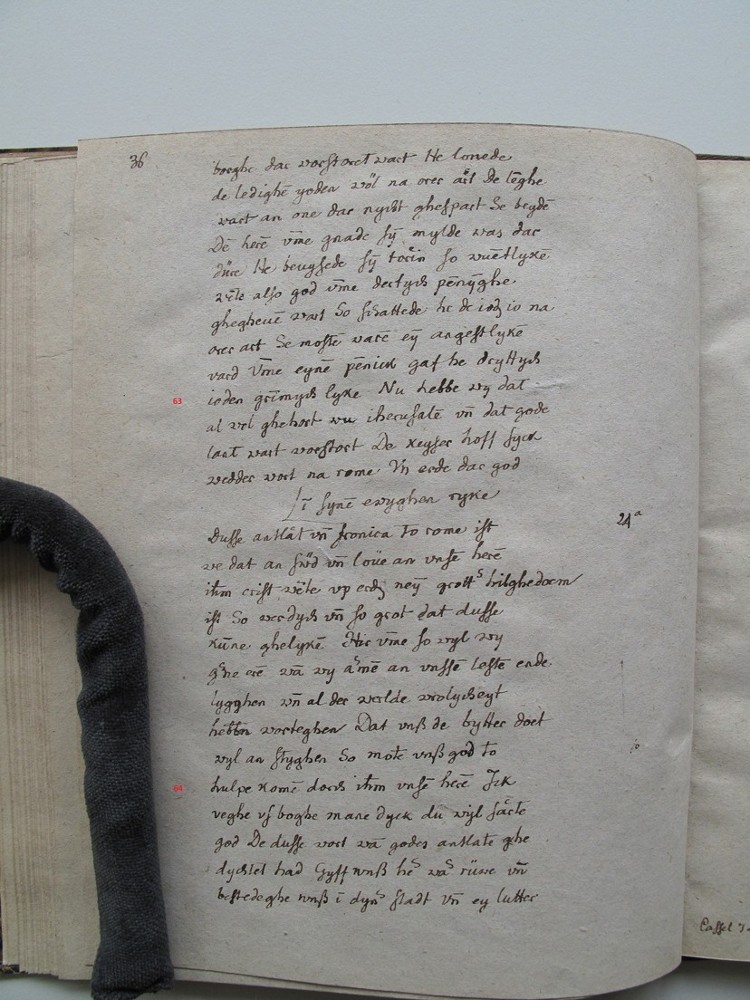 36
borghe dar vorstoret wart He lonede
de ledighē yoden wōl na orer art De lēghe
wart an one dar nycht ghespart Se beydē
Dē herē vm̄e gnade sȳ mylde was dar
dūre He bewysede sȳ torīn so
wēte also god vm̄e dertych pēnȳghe
ghegheuē wart So schattede he de iodē io na
orer art Se mostē warē eȳ angestlykē
vard Vm̄e eynē pēnick gaf he dryttych
63
ioden grīmych lyke Nu hebbe wy dat
al wol ghehort wu iherusalē vn̄ dat gode
lant wart vorstort De keyser hoff syck
wedder wort na rome Vn̄ erde dar god
Ī synē ewyghen ryke
24a
Dusse antlāt vn̄ fronica to rome ist
we dat an vn̄ loūe an vnsē herē
ihm crist wēte vp neȳ grott hilghedoem
ist So werdych vn̄ so grot dat dusse
kūne ghelykē Hir vm̄e so wyl wy
erē wā wy āmē an vnssē lestē ende
lygghen vn̄ al der werlde wrolycheyt
hebbn vorteghen Dat vnß de bytter doet
wyl an styghen So motē vnß god to
64
hulpe komē dorch ihm vnsē herē Jck
veghe vſ boghe mane dyck du wyl
god De dusse wort wā godes antlate ghe
dychtet had Gyff wnß he wā rūwe vn̄
bestedeghe wnß ī dyn stadt vn̄ ey lutter
Cassel